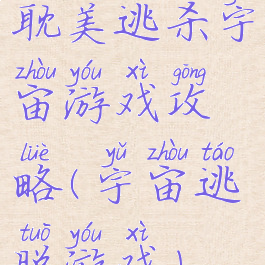 耽美逃杀宇
zhòu yóu xì gōng
宙游戏攻
lüè yǔ zhòu táo
略(宇宙逃
tuō yóu xì
脱游戏)